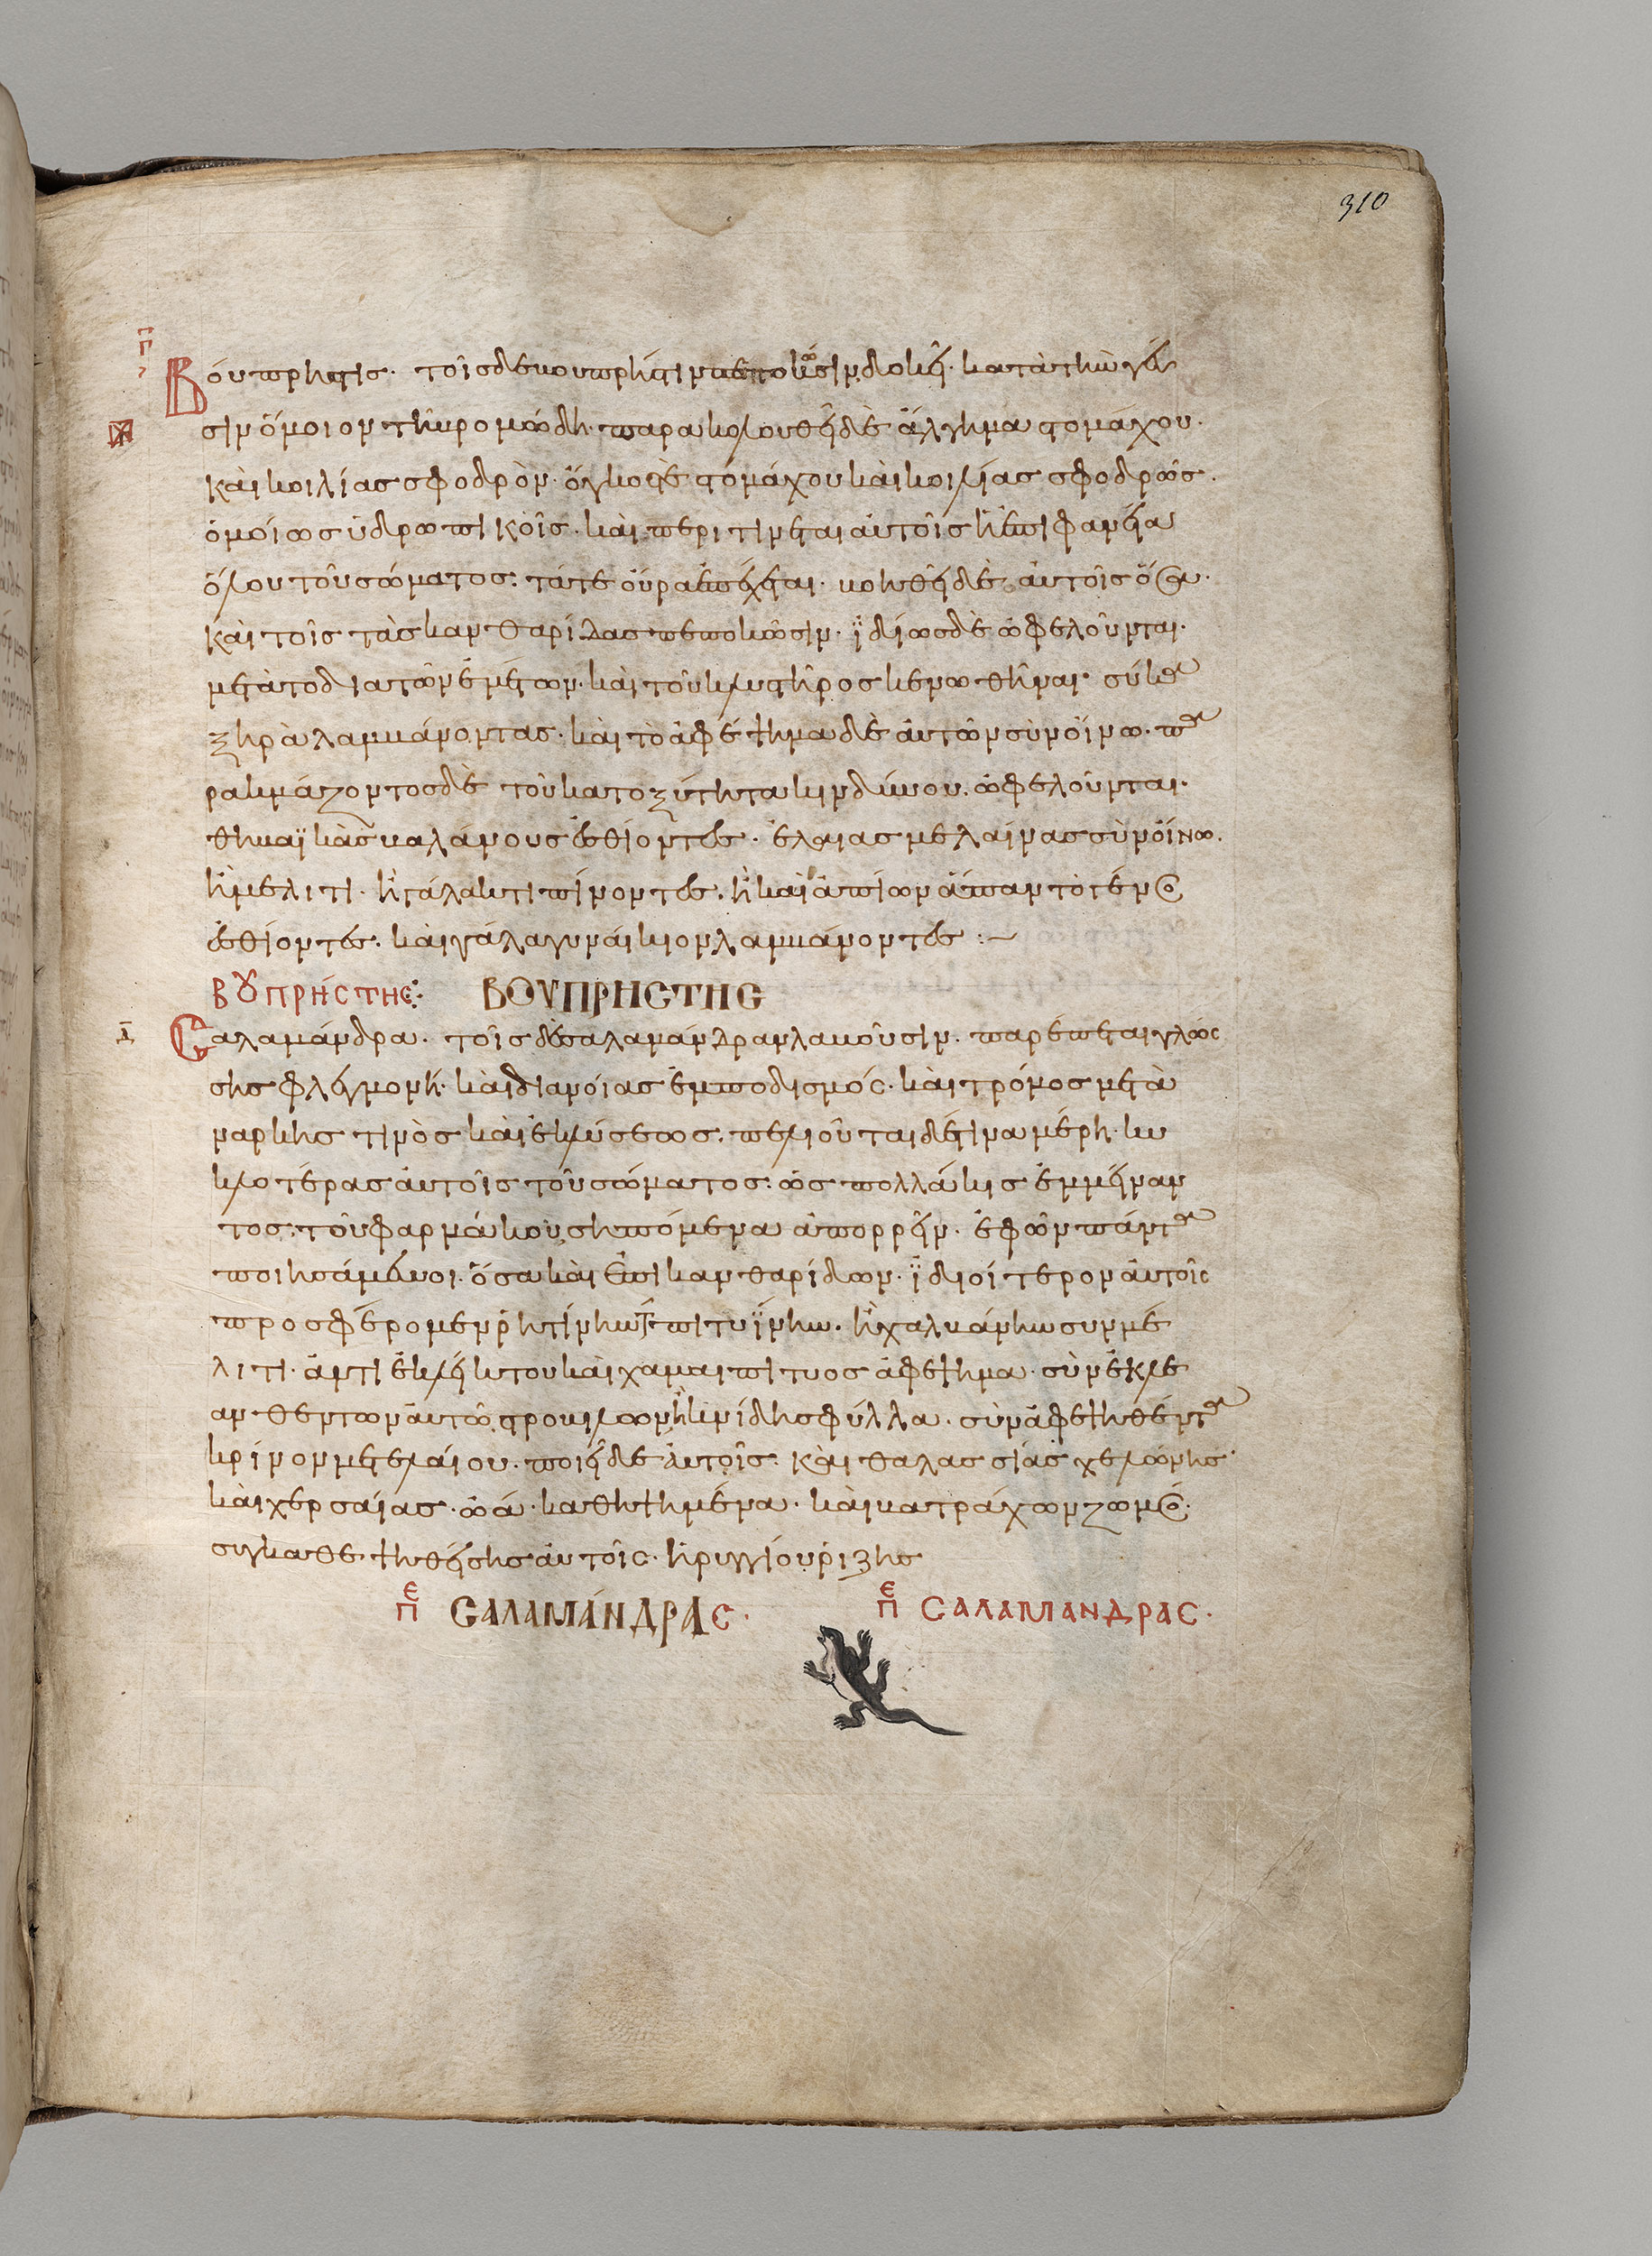 310
Βούπρηστις· τοῖς δὲ βουπρήστιν πεπωκόσιν δοκεῖ· κατὰ τὴν γεῦ
σιν ὅμοιον τῆ βρομώδη· παρακολουθεῖ δὲ ἄλγημα στομάχου·
καὶ κοιλίας σφοδρὸν· ὄγκος τὲ στόμάχου καὶ κοιλίας σφοδρῶς·
ὁμοίως ὑδρωπικοῖς· καὶ περιτίνεται ἀυτοῖς ἡ ἐπιφανεία
ὅλου τοῦ σώματος· τάτε οὖρα ἐπέχεται· βοηθεῖ δὲ ἀυτοῖς ὅσα·
καὶ τοῖς τὰς κανθαρίδας πεπωκόσιν· ϊδίως δὲ ὠφελοῦνται·
μετὰ τὸ διὰ τῶν ἐμέτων· καὶ τοῦ κλυστῆρος κενωθῆναι· σύκα
ξηρὰ λαμβάνοντας· καὶ τὸ ἀφέψημα δὲ ἀυτῶν σὺν ὄίνω· πα
ρακμάζοντος δὲ τοῦ κατοξύτητα κινδύνου· ὠφελοῦνται·
θηβαϊκὰς βαλάνους ἐσθίοντες· ἐλαιας μελαίνας σὺν ὄίνω·
ἢ μέλιτι· ἢ γάλακτι πίνοντες· ἢ καὶ ἀπίων ἅπαν τὸ γένος
ἐσθίοντες· καὶ γάλα γυναίκιον λαμβάνοντες :~
ΒΟΥΠΡΉΣΤΗΣ: ΒΟΥΠΡΗΣΤΗΣ
Σαλαμάνδρα· τοῖς δὲ σαλαμάνδραν λαβοῦσιν· παρέπεται γλώσ
σης φλεγμονή· καὶ διανοίας ἐμποδισμός· καὶ τρόμος μετὰ
ναρκης τινὸς καὶ ἐκλύσεως· πελιοῦται δέ τινα μέρη· κυ
κλοτέρας ἀυτοῖς τοῦ σώματος· ὡς πολλάκις ἐμμείναν
τος· τοῦ φαρμάκου σηπόμενα ἀπορρεῖν· ἐφῶν πάντα
ποιησάμενοι· ὅσα καὶ ἐπὶ κανθαρίδων· ϊδιοίτερον ἀυτοῖς
προσφέρομεν ῥητίνην πιτυϊνην· ἢ χαλβάνην συν μέ
λιτι· ἀντὶ ἐκλείκτου καὶ χαμαιπίτυος ἀφέψημα· σὺν ἐκλε
ανθεντων ἀυτῶ στροβίλων ἢ κνίδης φύλλα· σὺν ἀφεψηθέντα
κρίνον μετελαίου· ποιεῖ δὲ ἀυτοῖς· καὶ θαλασσίας χελώνης·
καὶ χερσαίας· ὠά· καθηψημένα· καὶ βατράχων ζωμὸς·
συγκαθεψηθείσης ἀυτοῖς· ἠρυγγίου ῥίζης
ΠΕ ΣΑΛΑΜΆΝΔΡΑΣ· ΠΕ ΣΑΛΑΜΑΝΔΡΑΣ·